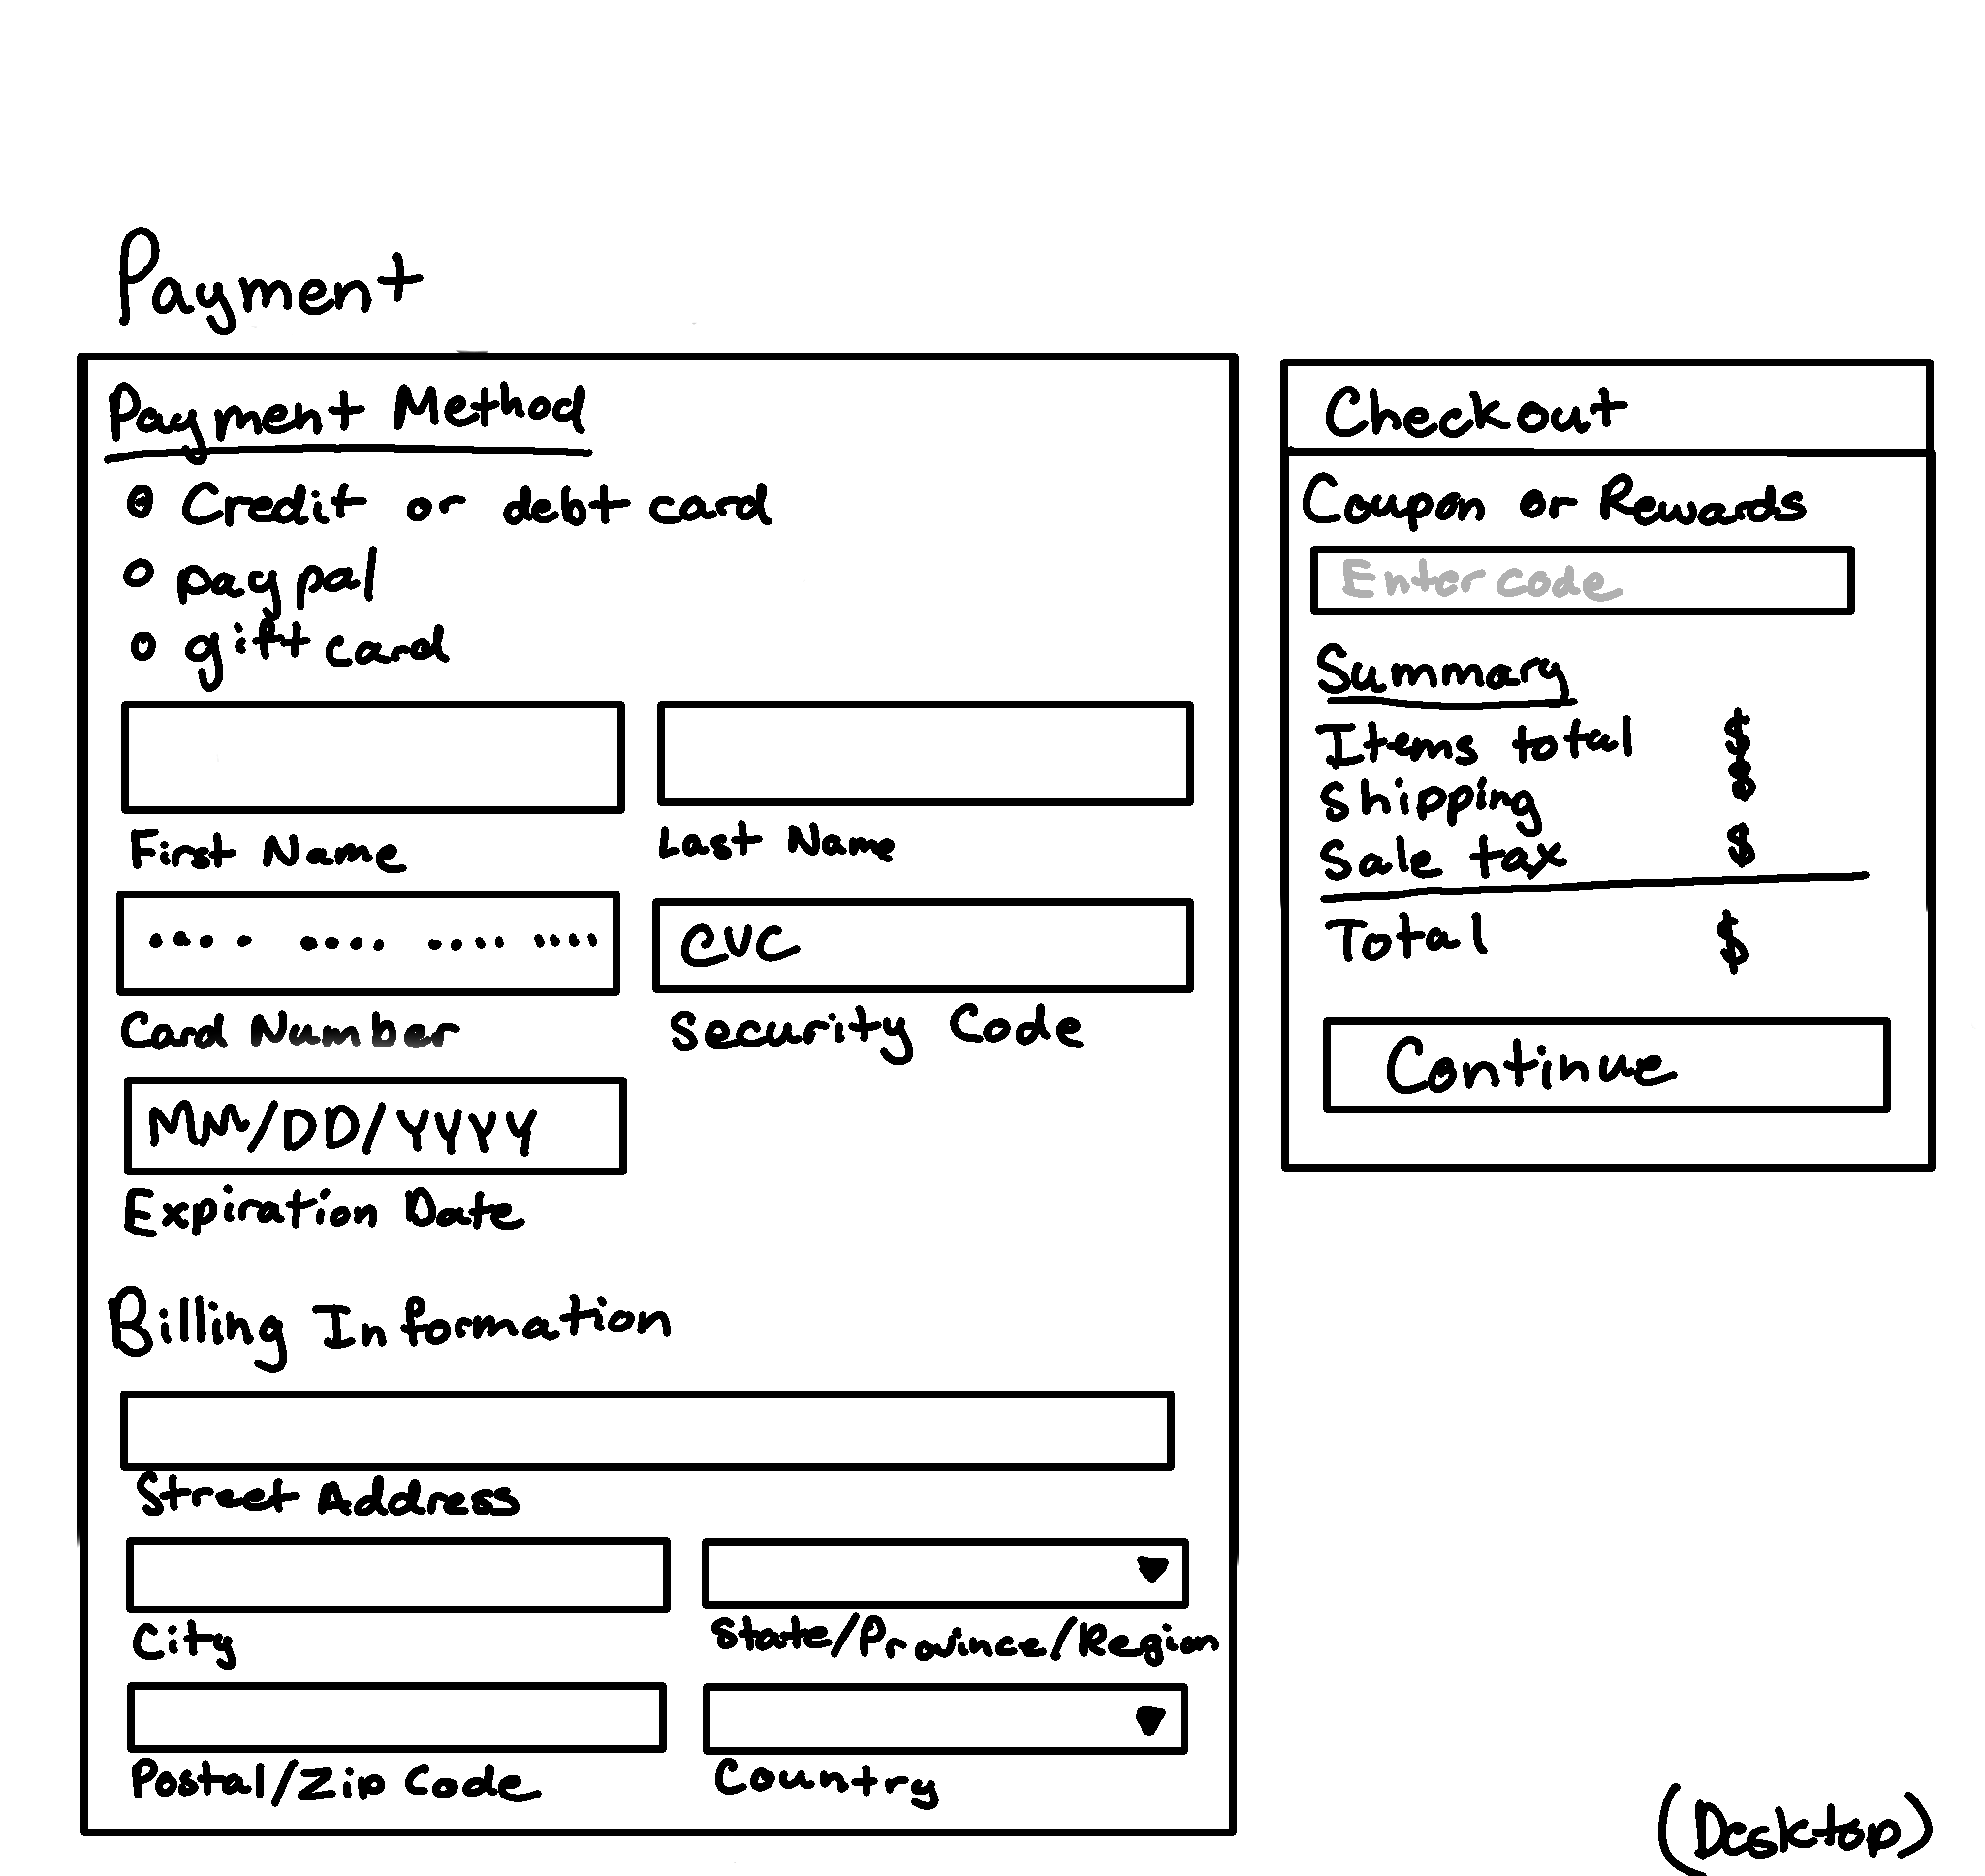 Payment
Payment Method
Credit or debt card
paypal
gift card
First Name
Last Name
CVC
Card Number
Security Code
MM/DD/YYYY
Expiration Date
Billing Information
Street Address
City
State/Province/Region
Postal/Zip Code
Country
Checkout
Coupon or Rewards
Enter code
Summary
Items total $
Shipping $
Sale tax $
Total $
Continue
(Desktop)